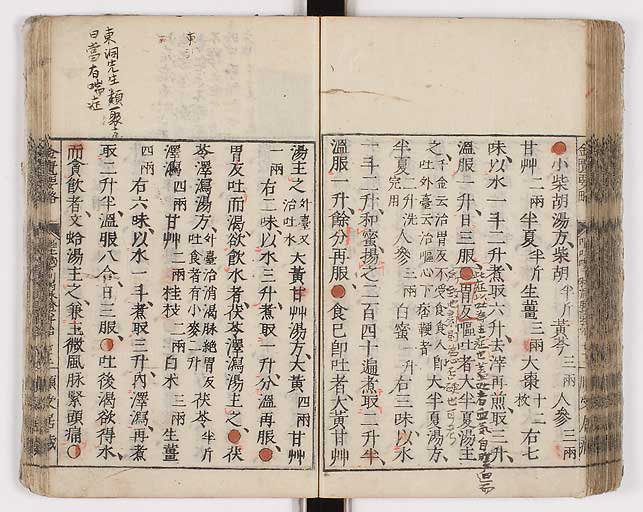 小柴胡湯方柴胡半斤黃芩三兩人参三兩
甘艸二兩半夏半斤生薑三兩大棗十二枚右七
味以水一斗二升煮取六升去滓再煎取三升
溫服一升日三服胃反嘔吐者大半夏湯主
之千金云治胃反不受食食入即吐外臺云治嘔心下痞鞕者大半夏湯方
半夏二升洗完用人参三兩白蜜一升右三味以水
一斗二升和蜜揚之二百四十遍煮取二升半
溫服一升餘分再服食已即吐者大黃甘艸
湯主之外臺又治吐水大黃甘艸湯方大黃四兩甘艸
一兩右二味以水三升煮取一升分溫再服
胃反吐而渴欲飲水者茯苓澤瀉湯主之茯
苓澤瀉湯方外臺治消渴脉絶胃反吐食者有小麥一升茯苓半斤
澤瀉四兩甘艸二兩桂枝二兩白朮三兩生薑
四兩右六味以水一斗煮取三升內澤瀉再煮
取二升半溫服八合日三服吐後渴欲得水
而貪飲者文蛤湯主之兼主微風脉緊頭痛
東洞先生類聚方
曰當有喘症
金匱要略